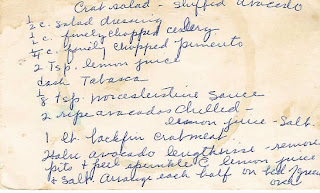 Crab salad - Stuffed Avacado
1/2 c. salad dressing
1/2 c. finely chopped celery
1/4 c. finely chopped pimento
2 Tsp. lemon juice
dash Tabasca
1/8 tsp. Worcestershire Sauce
2 ripe avacados Chilled -
lemon juice - Salt.
1 lb. backfin Crabmeat
Halve avocado lengthwise - remove
pits & peel sprinkle c lemon juice
& Salt. Arrange each half on bed